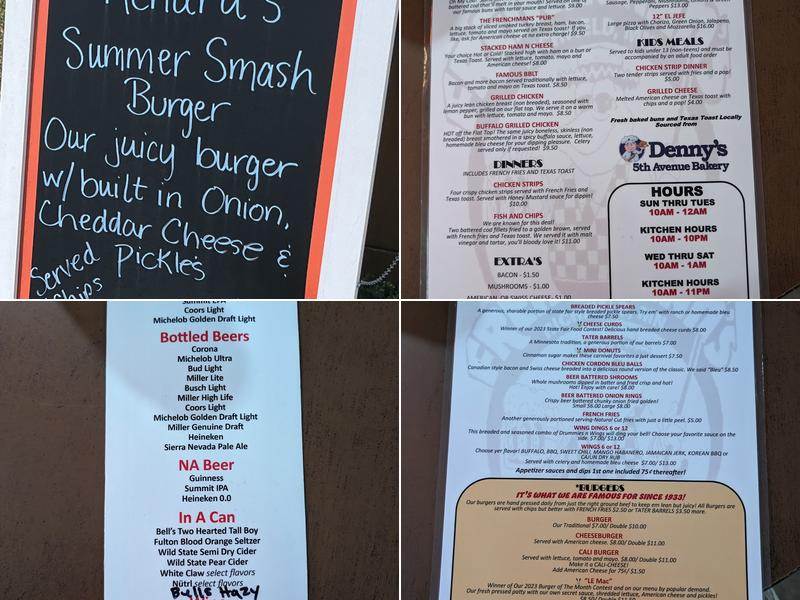 Summer Smash
Burger
Our juicy burger
w/built in Onion,
Cheddar Cheese &
Pickles
Served
chips
battered cod that'll melt in your mouth! Served on one of
our famous buns with tartar sauce and lettuce. $9.00
THE FRENCHMANS "PUB"
A big stack of sliced smoked turkey breast, ham, bacon,
lettuce, tomato and mayo served on Texas toast! If you
like, ask for American cheese at no extra charge! $9.50
STACKED HAM N CHEESE
Your choice Hot or Cold! Stacked high with ham on a bun or
Texas toast. Served with lettuce, tomato, mayo and
American cheese! $8.00
FAMOUS BBLT
Bacon and more bacon served traditionally with lettuce,
tomato and mayo on Texas toast. $8.50
GRILLED CHICKEN
A juicy lean chicken breast (non breaded), seasoned with
lemon pepper, grilled on our flat top. We serve it on a warm
bun with lettuce, tomato and mayo. $8.50
BUFFALO GRILLED CHICKEN
HOT off the Flat Top! The same juicy boneless, skinless (non
breaded) breast smothered in a spicy buffalo sauce, lettuce,
homemade bleu cheese for your dipping pleasure. Celery
served only if requested! $9.50
DINNERS
INCLUDES FRENCH FRIES AND TEXAS TOAST
CHICKEN STRIPS
Four crispy chicken strips served with French Fries and
Texas toast. Served with Honey Mustard sauce for dippin!
$10.00
FISH AND CHIPS
We are known for this deal!
Two battered cod fillets fried to a golden brown, served
with French Fries and Texas toast. We served it with malt
vinegar and tartar, you'll bloody love it! $11.00
EXTRA'S
BACON - $1.50
MUSHROOMS - $1.00
AMERICAN, OR SWISS CHEESE - $1.00
Peppers $13.00
12" EL JEFE
Large pizza with Chorizo, Green Onion, Jalapeno,
Black Olives and Mozzarella $16.00
KIDS MEALS
Served to kids under 13 (non-teens) and must be
accompanied by an adult food order
CHICKEN STRIP DINNER
Two tender strips served with fries and a pop!
$5.00
GRILLED CHEESE
Melted American cheese on Texas toast with
chips and a pop! $4.00
Fresh baked buns and Texas Toast Locally
Sourced from
Denny's
5th Avenue Bakery
HOURS
SUN THRU TUES
10AM - 12AM
KITCHEN HOURS
10AM - 10PM
WED THRU SAT
10AM - 1AM
KITCHEN HOURS
10AM - 11PM
Summit IPA
Coors Light
Michelob Golden Draft Light
Bottled Beers
Corona
Michelob Ultra
Bud Light
Miller Lite
Busch Light
Miller High Life
Coors Light
Michelob Golden Draft Light
Miller Genuine Draft
Heineken
Sierra Nevada Pale Ale
NA Beer
Guinness
Summit IPA
Heineken 0.0
In A Can
Bell's Two Hearted Tall Boy
Fulton Blood Orange Seltzer
Wild State Semi Dry Cider
Wild State Pear Cider
White Claw select flavors
Nütrl select flavors
Bells Hazy
BREADED PICKLE SPEARS
A generous, sharable portion of state fair style breaded pickle spears. Try em' with ranch or homemade bleu
cheese $7.50
CHEESE CURDS
Winner of our 2023 State Fair Food Contest! Delicious hand breaded cheese curds $8.00
TATER BARRELS
A Minnesota tradition, a generous portion of our barrels $7.00
MINI DONUTS
Cinnamon sugar makes these carnival favorites a just dessert $7.50
CHICKEN CORDON BLEU BALLS
Canadian style bacon and Swiss cheese breaded into a delicious round version of the classic. We said "Bleu" $8.50
BEER BATTERED SHROOMS
Whole mushrooms dipped in batter and fried crisp and hot!
Hot! Enjoy with care! $8.00
BEER BATTERED ONION RINGS
Crispy beer battered chunky onion fried golden!
Small $6.00 Large $8.00
FRENCH FRIES
Another generously portioned serving-Natural Cut fries with just a little peel. $5.00
WING DINGS 6 or 12
This breaded and seasoned combo of Drummies n Wings will ding your bell! Choose your favorite sauce on the
side. $7.00/ $13.00
WINGS 6 or 12
Choose yer flavor! BUFFALO, BBQ, SWEET CHILI, MANGO HABANERO, JAMAICAN JERK, KOREAN BBQ or
CAJUN DRY RUB
Served with celery and homemade bleu cheese $7.00/ $13.00
Appetizer sauces and dips 1st one included 75¢ thereafter!
*BURGERS
IT'S WHAT WE ARE FAMOUS FOR SINCE 1933!
Our burgers are hand pressed daily from just the right ground beef to keep em lean but juicy! All Burgers are
served with chips but better with FRENCH FRIES $2.50 or TATER BARRELS $3.50 more.
BURGER
Our Traditional $7.00/ Double $10.00
CHEESEBURGER
Served with American cheese. $8.00/ Double $11.00
CALI BURGER
Served with lettuce, tomato and mayo. $8.00/ Double $11.00
Make it a CALI-CHEESE!
Add American Cheese for 75¢/ $1.50
"LE Mac"
Winner of Our 2023 Burger of The Month Contest and on our menu by popular demand.
Our fresh pressed patty with our own secret sauce, shredded lettuce, American cheese and pickles!